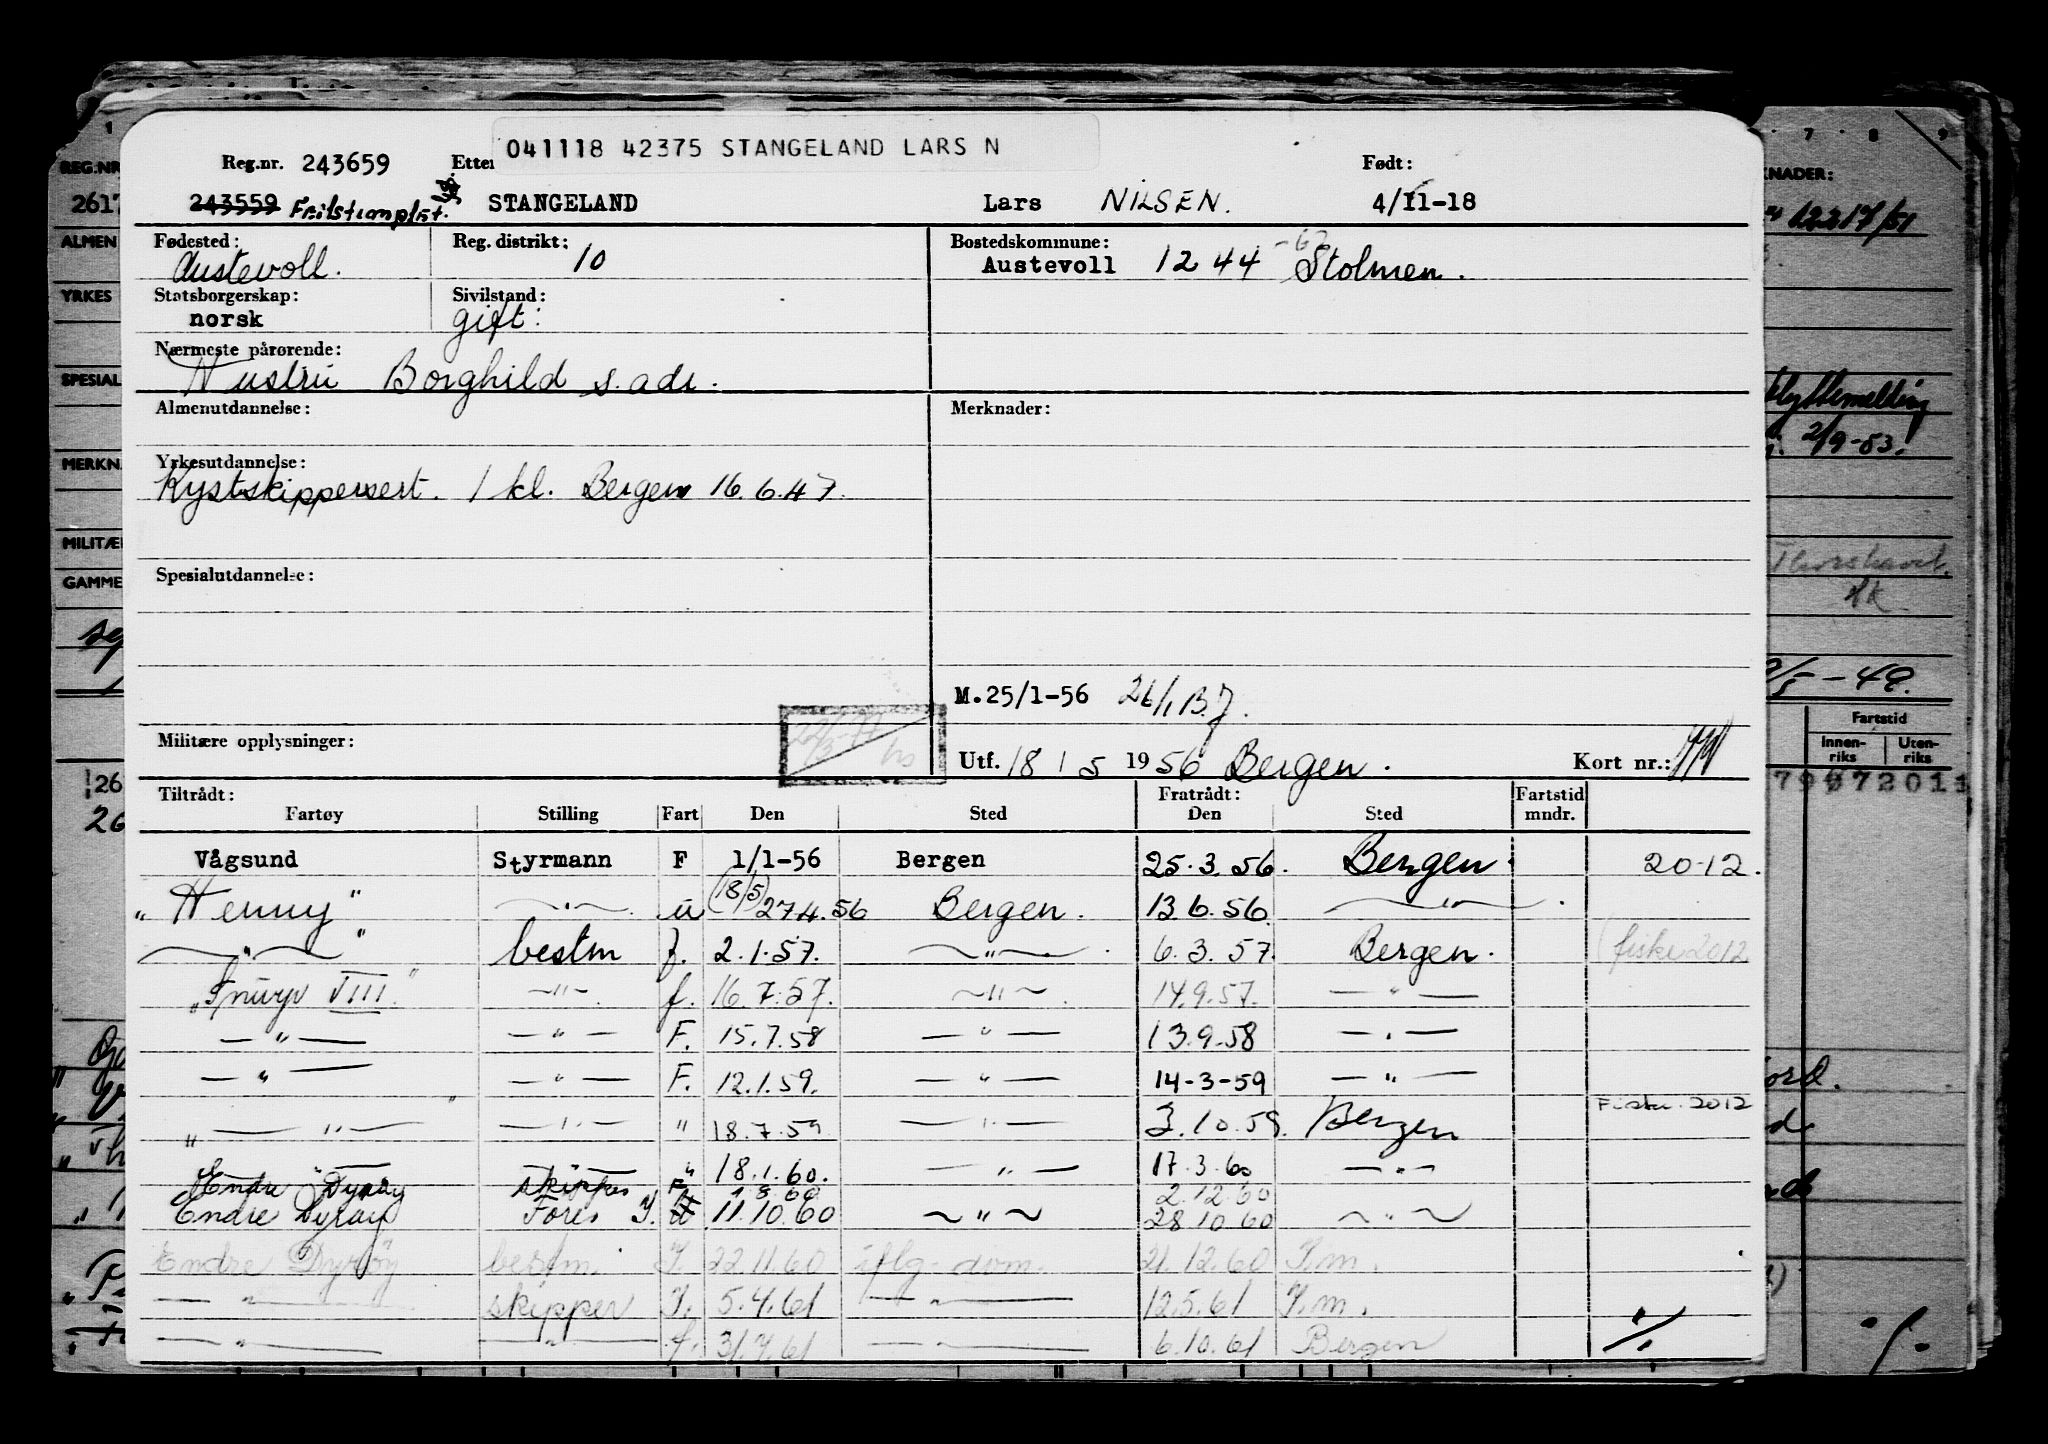 041118 42375 STANGELAND LARS N
Reg.nr. 243659 Etter Født:
243559 STANGELAND Lars NILSEN. 4/11-18
Fødested: Reg. distrikt: Bostedskommune:
Austevoll. 10 Austevoll 1244 Stolmen.
Statsborgerskap: Sivilstand:
norsk gift:
Nærmeste pårørende:
Hustru Borghild s. adr.
Almenutdannelse: Merknader:
Yrkesutdannelse:
Kystskippersert. 1 kl. Bergen 16.6.47.
Spesialutdannelse:
M.25/1-56
Militære opplysninger:
Utf. 18 / 5 1956 Bergen. Kort nr.:
Tiltrådt: Fratrådt: Fartstid
Fartøy Stilling Fart Den Sted Den Sted mndr.
Vågsund Styrmann F 1/1-56 Bergen 25.3.56. Bergen. 20-12.
"Henny" —"— u (18/5) 27.4.56 Bergen. 13.6.56 —"—.
—"—" bestm f. 2.1.57. —"—. 6.3.57. Bergen. (fiske 2012
VIII" —"— f. 16.7.57. —"— 14.9.57. —"—
—"— —"— F. 15.7.58 —"— 13.9-58 —"—
—"— —"— F. 12.1.59. —"— 14-3-59 —"—
"—"—" —"— " 18.7.59 —"— 3.10.59. Bergen Fiske. 2012
—"— —"— " 18.1.60. —"— 17.3.60 —"—
Endre Dyrøy skipper F 1.8.60. 2.12.60
Endre Dyrøy 11.10.60 —"— 28.10.60 —"—
Endre Dyrøy bestm. 22.11.60 iflg. dom. 21.12.60
—"— skipper 5.4.61 —"— 12.5.61
—"— —"— f. 31.7.61 —"— 6.10.61 Bergen
REG.NR
2617
ALMEN
YRKES
SPESIAL
MERKN.
MILITÆ
GAMME
KNADER:
12217/51
flyttemelding
2/9-53.
Fartstid
Innen-
riks
Uten-
riks